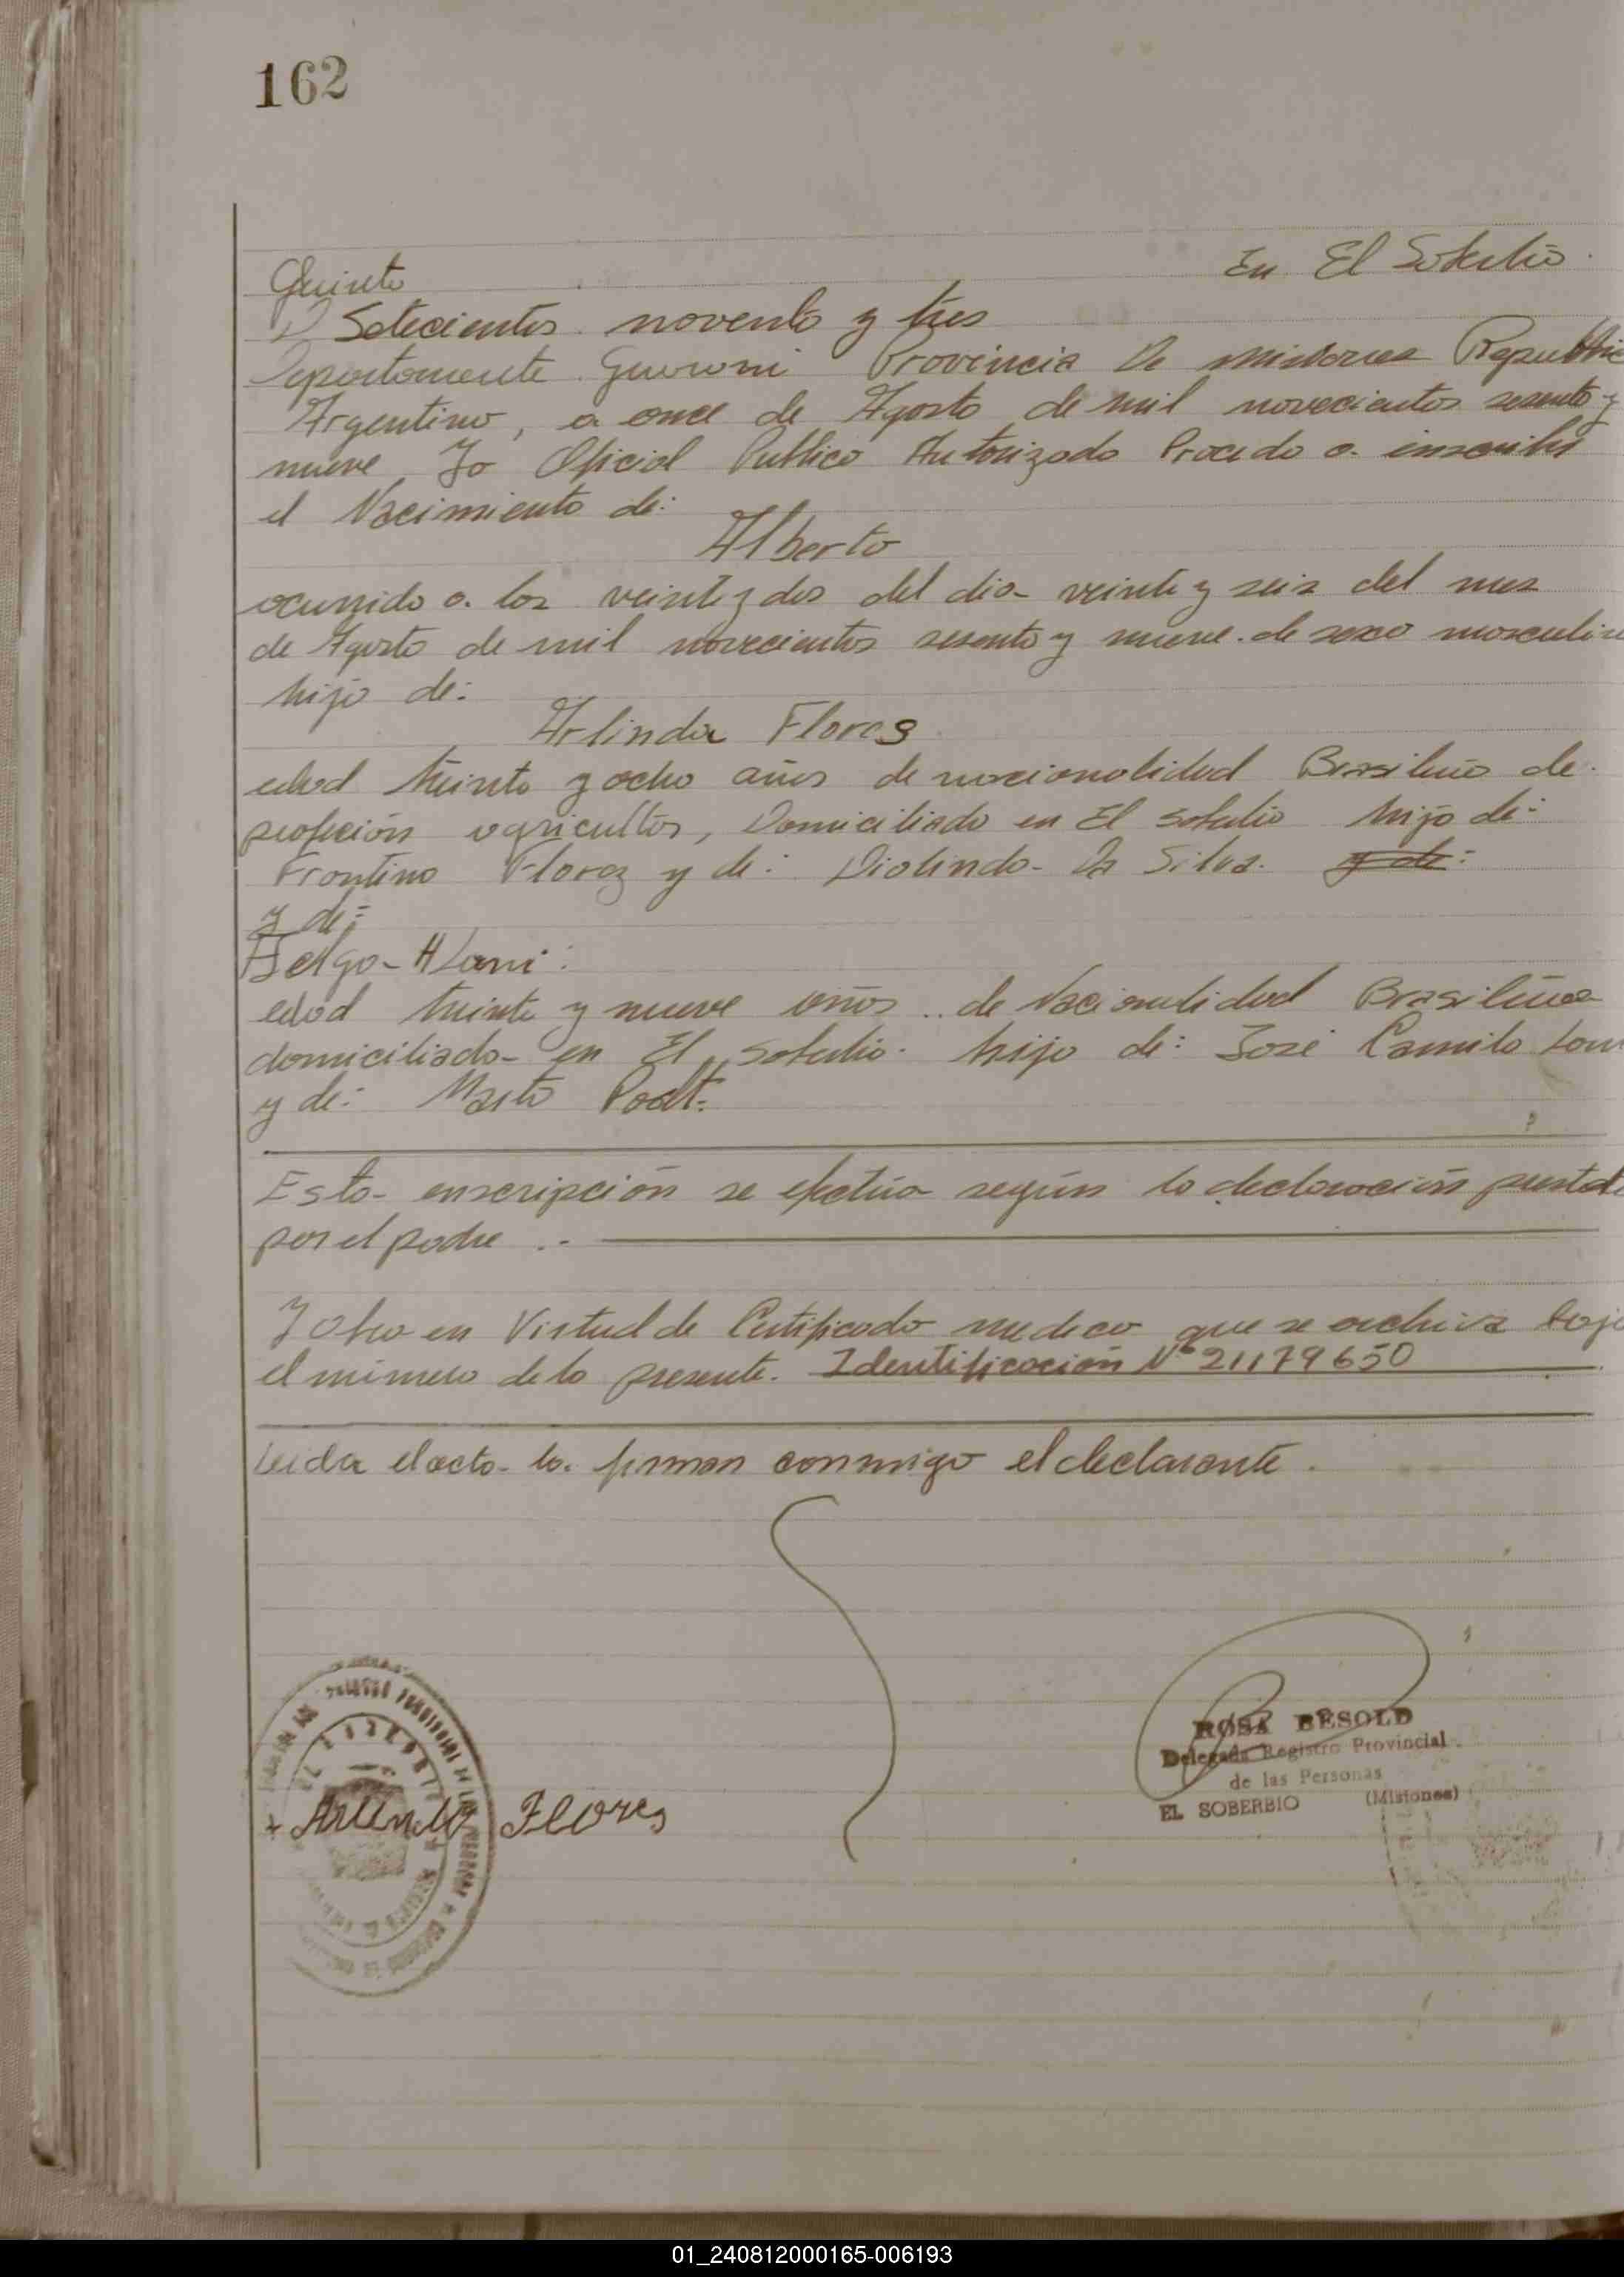 162
Quinto En El Soberbio.
Setecientos noventa y tres
Departamente Guarani Provincia De Misiones Republic
Argentina, a once de Agosto de mil novecientos sesenta y
nueve Yo Oficial Publico Autorizado Procedo a inscribir
el Nacimiento de:
Alberto
ocurrido a las veinte y dos del dia veinte y seis del mes
de Agosto de mil novecientos sesenta y nueve. de sexo masculin
hijo de:
Arlindo Flores
edad treinta y ocho años de nacionalidad Brasileño de
profeción agricultor, Domiciliado en El Soberbio hijo de:
Frontino Florez y de: Diolinda Da Silva. y de:
y de:
edad treinta y nueve años .. de Nacionalidad Brasileña
domiciliada en El Soberbio. hija de: José Camilo
y de: Marta
Esta enscripción se efectúa según la declaración prestad
por el padre .-
Y otro en Virtud de Certificado medico que se archiva bajo
el número de la presente. Identificación Nº 21179650
Leida el acta la firman conmigo el declarante.
Arlindo Flores
ROSA BESOLD
Delegada Registro Provincial
de las Personas
EL SOBERBIO (Misiones)
01_240812000165-006193